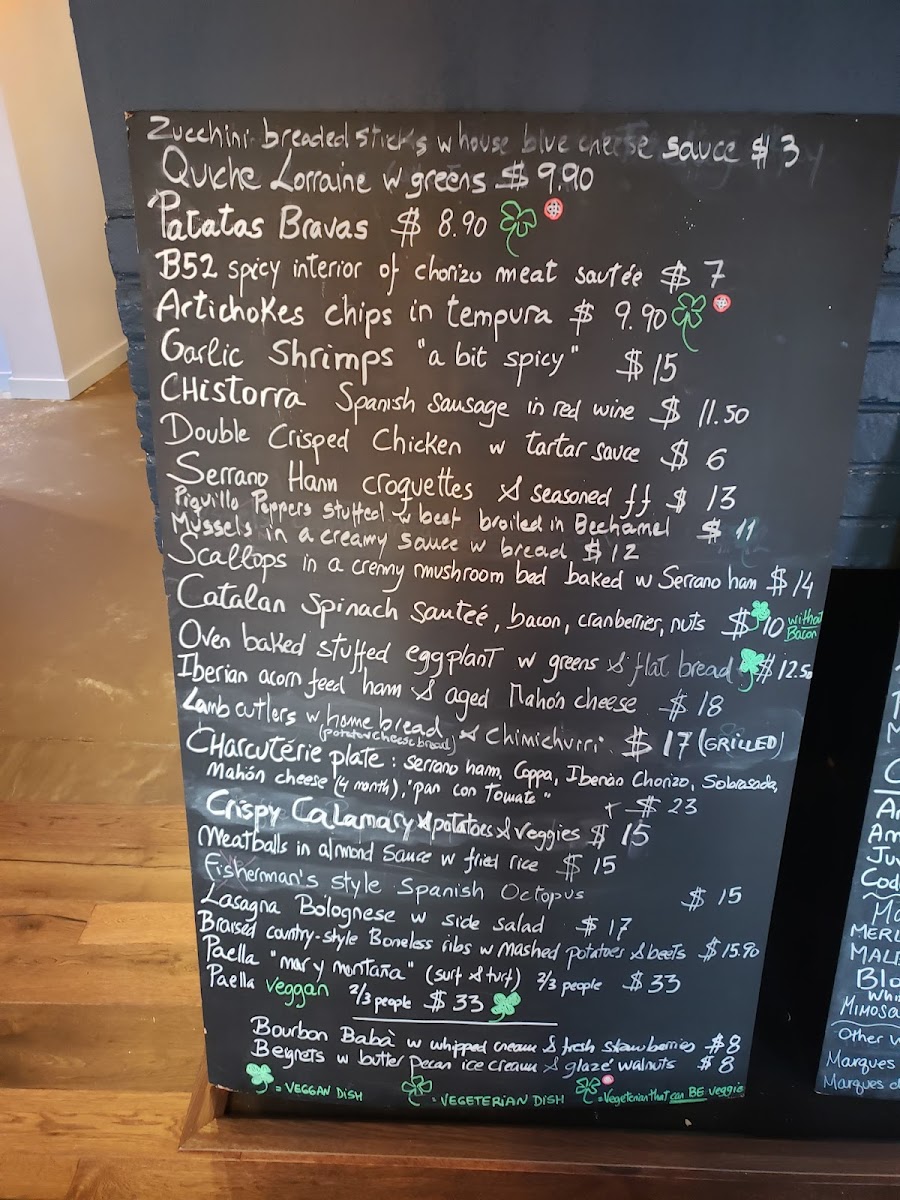 Zucchini breaded sticks w house blue cheese sauce $3
Quiche Lorraine w greens $9.90
Patatas Bravas $8.90
B52 spicy interior of chorizo meat sautée $7
Artichokes chips in tempura $9.90
Garlic Shrimps "a bit spicy" $15
CHistorra Spanish sausage in red wine $11.50
Double Crisped Chicken w tartar sauce $6
Serrano Ham croquettes & seasoned ff $13
Piquillo Peppers stuffed w beef broiled in Bechamel $11
Mussels in a creamy sauce w bread $12
Scallops in a cremy mushroom bed baked w Serrano ham $14
Catalan Spinach sauteé, bacon, cranberries, nuts $10 without Bacon
Oven baked stuffed eggplant w greens & flat bread $12.50
Iberian acorn feed ham & aged Mahón cheese $18
Lamb cutlers w home bread & Chimichurri $17 (GRILLED)
(potato cheese bread)
CHarcutérie plate: serrano ham, Coppa, Iberian Chorizo, Sobrasada,
Mahón cheese (4 month), "pan con Tomate" $23
Crispy Calamary & potatoes & veggies $15
Meatballs in almond sauce w fried rice $15
Fisherman's style Spanish Octopus $15
Lasagna Bolognese w side salad $17
Braised country-style Boneless ribs w mashed potatoes & beets $15.90
Paella "mar y montaña" (surf & turf) 2/3 people $33
Paella veggan 2/3 people $33
Bourbon Babà w whipped cream & fresh strawberries $8
Beignets w butter pecan ice cream & glazé walnuts $8
= VEGGAN DISH = VEGETERIAN DISH = Vegeterian that can BE veggie
MERL
MALB
MIMOSA
Other w
Marques
Marques d